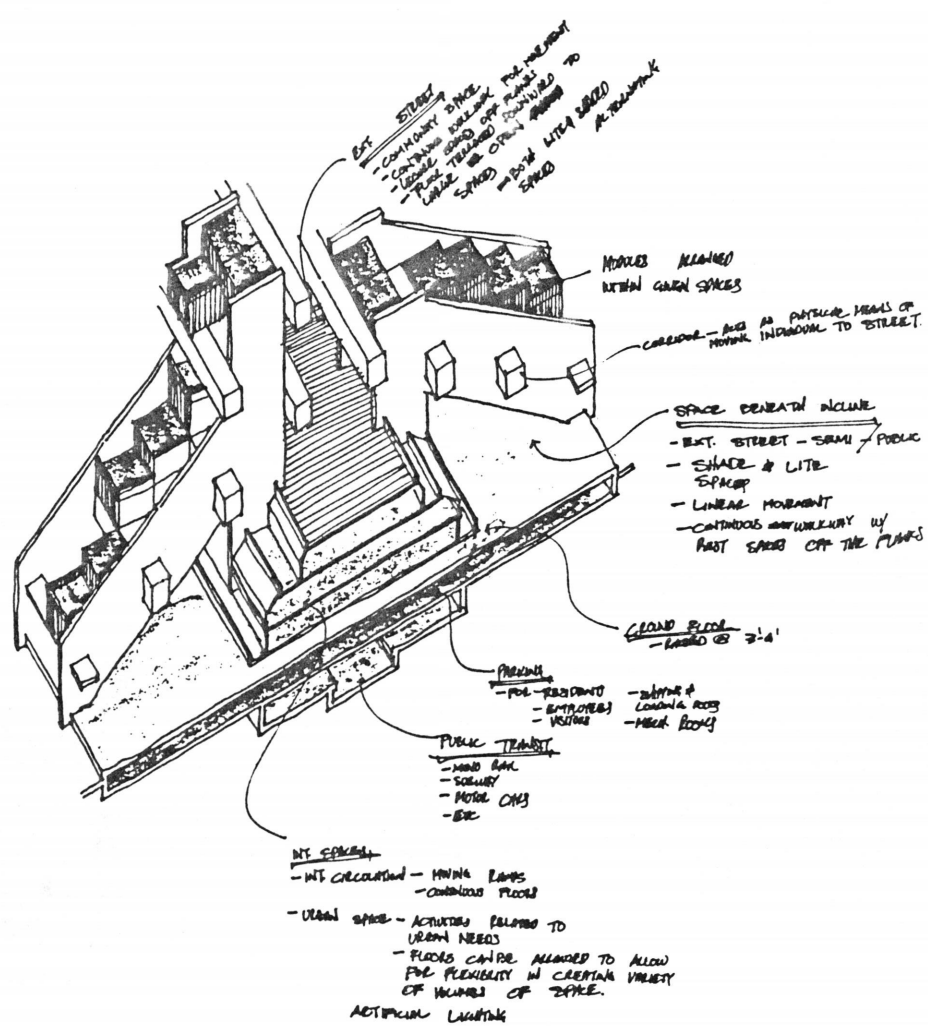 EXT STREET
- COMMUNITY SPACE
- CONTINUOUS WALKWAY FOR MOVEMENT
- LEISURE SPACES OFF PLANKS
- FLOOR TERRACED DOWNWARD TO
LARGE OPEN
SPACES - BOTH LITE & SHADED
SPACES ALTERNATING
MODULES ARRANGED
WITHIN GIVEN SPACES
CORRIDOR - AS PHYSICAL MEANS OF
MOVING INDIVIDUAL TO STREET.
SPACE BENEATH INCLINE
- EXT. STREET - SEMI - PUBLIC
- SHADE & LITE
SPACES
- LINEAR MOVEMENT
- CONTINUOUS WALKWAY W/
SPACES OFF THE
GROUND FLOOR
- RAISED @
PARKING
- FOR - RESIDENTS
- EMPLOYEES
- VISITORS
- SHIPPING &
LOADING DOCKS
- MECH ROOMS
PUBLIC TRANSIT
- MONO RAIL
- SUBWAY
- MOTOR CARS
- ETC
INT. SPACES
- INT CIRCULATION - MOVING RAMPS
- CONTINUOUS FLOORS
- URBAN SPACE - ACTIVITIES RELATED TO
URBAN NEEDS
- FLOORS CAN BE ARRANGED TO ALLOW
FOR FLEXIBILITY IN CREATING VARIETY
OF VOLUMES OF SPACE.
ARTIFICIAL LIGHTING